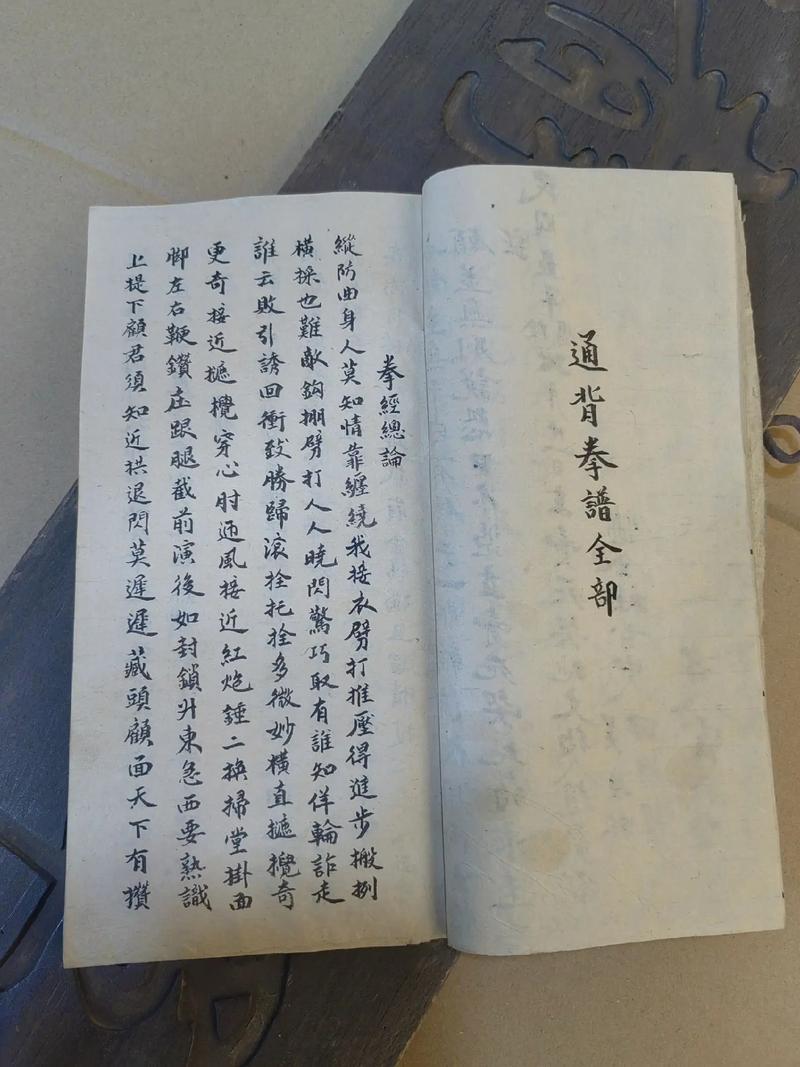 通背拳譜全部
拳經總論
縱防曲身人莫知情靠纏繞我接衣劈打推壓得進步搬捌
橫採也難敵鈎掤劈打人人曉閃驚巧取有誰知佯輪詐走
誰云敗引誘回衝致勝歸滾拴托拴多微妙橫直攄攪奇
更奇接近攄攪穿心肘迎風接近紅炮錘二换掃堂掛面
脚左右鞭鑽庄跟腿截前演後如封鎖廾東急西要熟識
上提下顧君須知近拱退閃莫遲遲藏頭顧面天下有攢